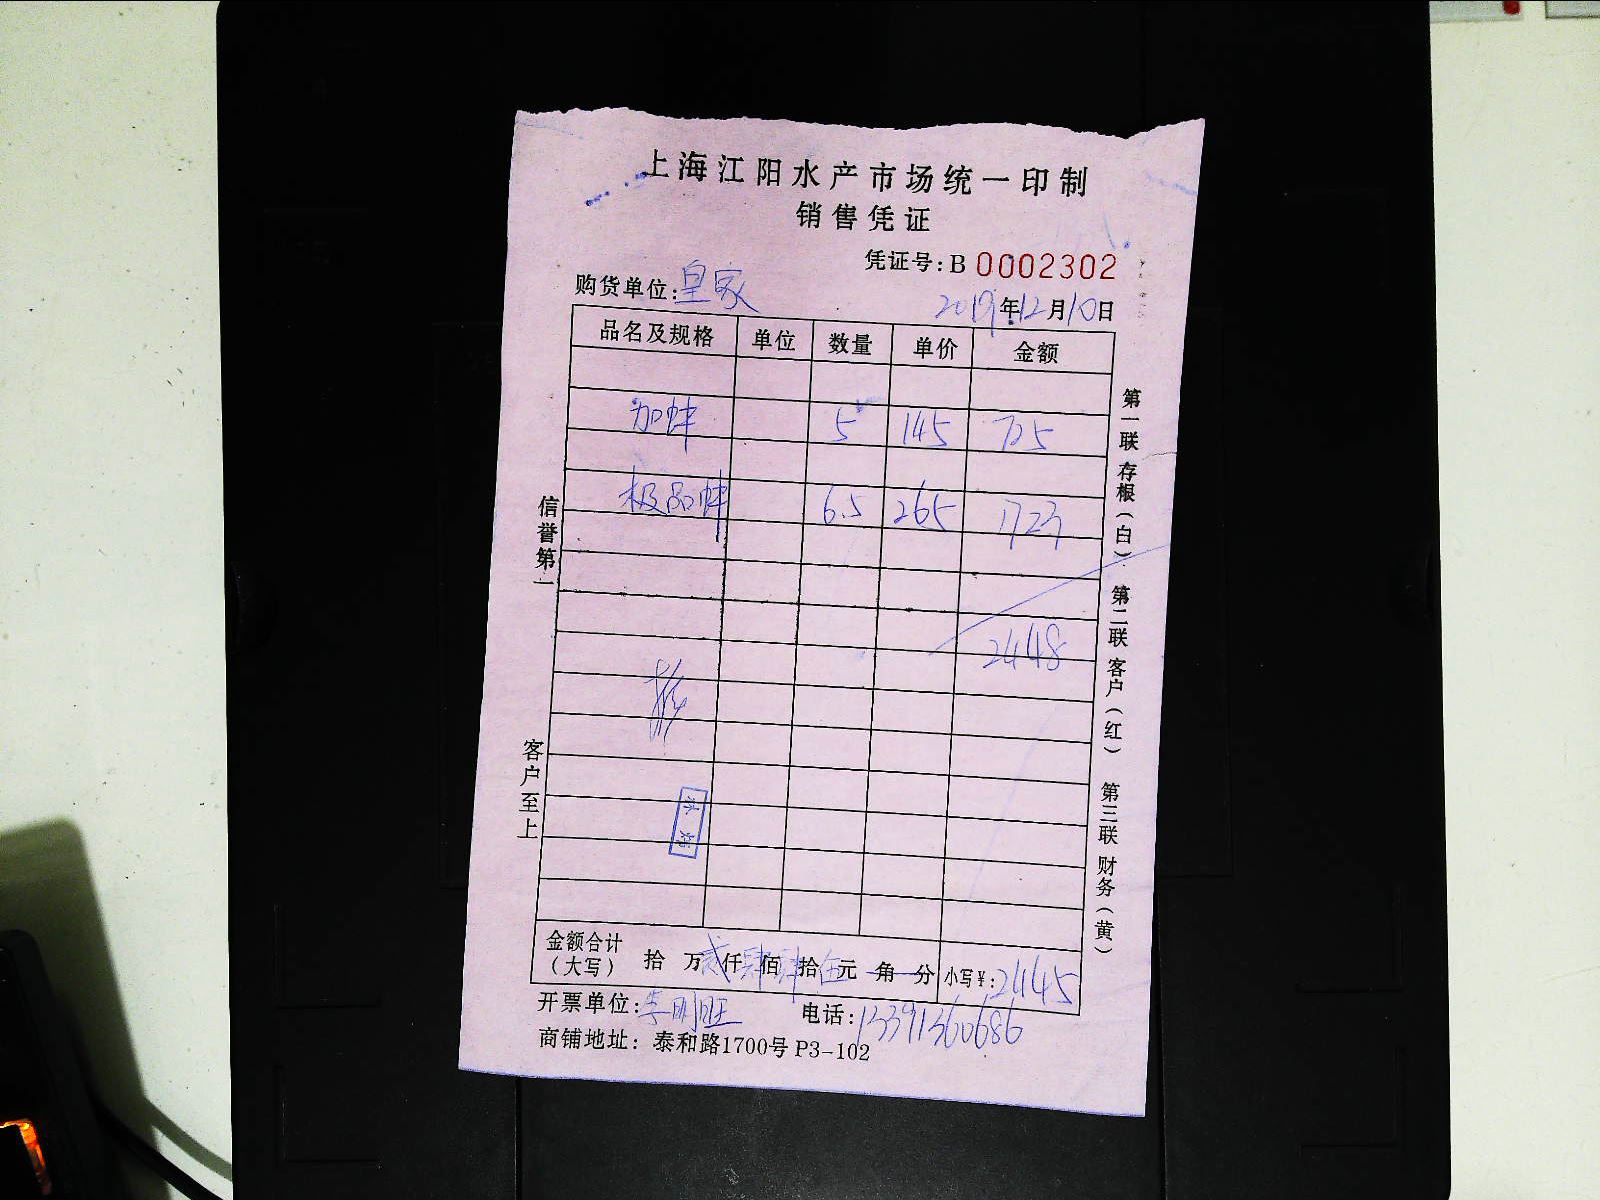 上海江阳水产市场统一印制
销售凭证
凭证号:B 0002302
购货单位:皇家 2019年12月10日
品名及规格 单位 数量 单价 金额
加蚌 5 145 725
极品蚌 6.5 265 1723
2448
金额合计(大写) 拾 万贰仟肆佰肆拾伍元 角 分 小写¥:2445
开票单位:李明旺 电话:13391360686
商铺地址: 泰和路1700号 P3-102
信誉第一
客户至上
第一联 存根(白) 第二联 客户(红) 第三联 财务(黄)